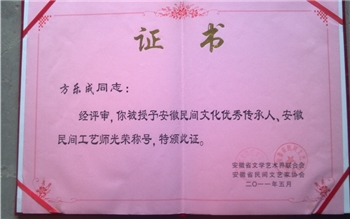 证书
方乐成同志：
经评审，你被授予安徽民间文化优秀传承人、安徽
民间工艺师光荣称号，特颁此证。
安徽省文学艺术界联合会
安徽省民间文艺家协会
二〇一一年五月